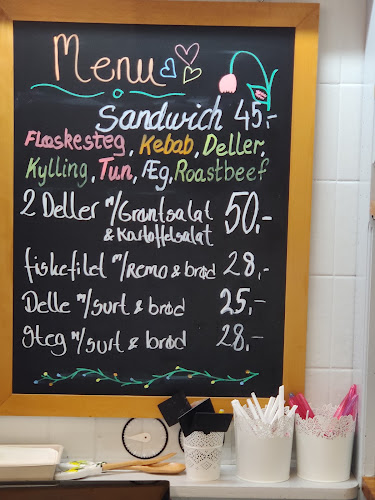 Menu
Sandwich 45,-
Flæskesteg, Kebab, Deller,
Kylling, Tun, Æg, Roastbeef
2 Deller m/Grøntsalat 50,-
& Kartoffelsalat
fiskefilet m/Remo & brød 28,-
Delle m/surt & brød 25,-
Steg m/surt & brød 28,-